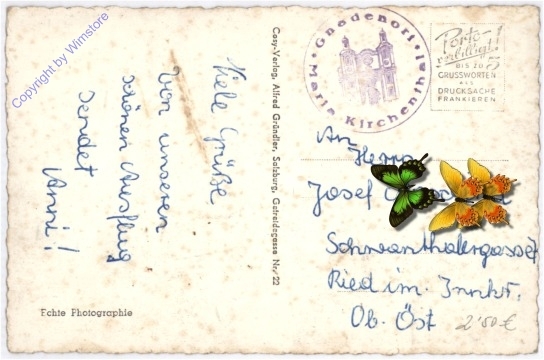 Copyright by Winstore
Viele Grüße
von unseren
schönen Ausflug
sendet
Anni!
Echte Photographie
Cosy-Verlag, Alfred Gründler, Salzburg, Getreidegasse Nr. 22
Gnadenort
Maria Kirchenthal
Porto
verbilligt!
BIS ZU 5
GRUSSWORTEN
ALS
DRUCKSACHE
FRANKIEREN
An
Herrn
Josef
Schwanthalergasse
Ried im Innkr.
Ob. Öst
2'50 €